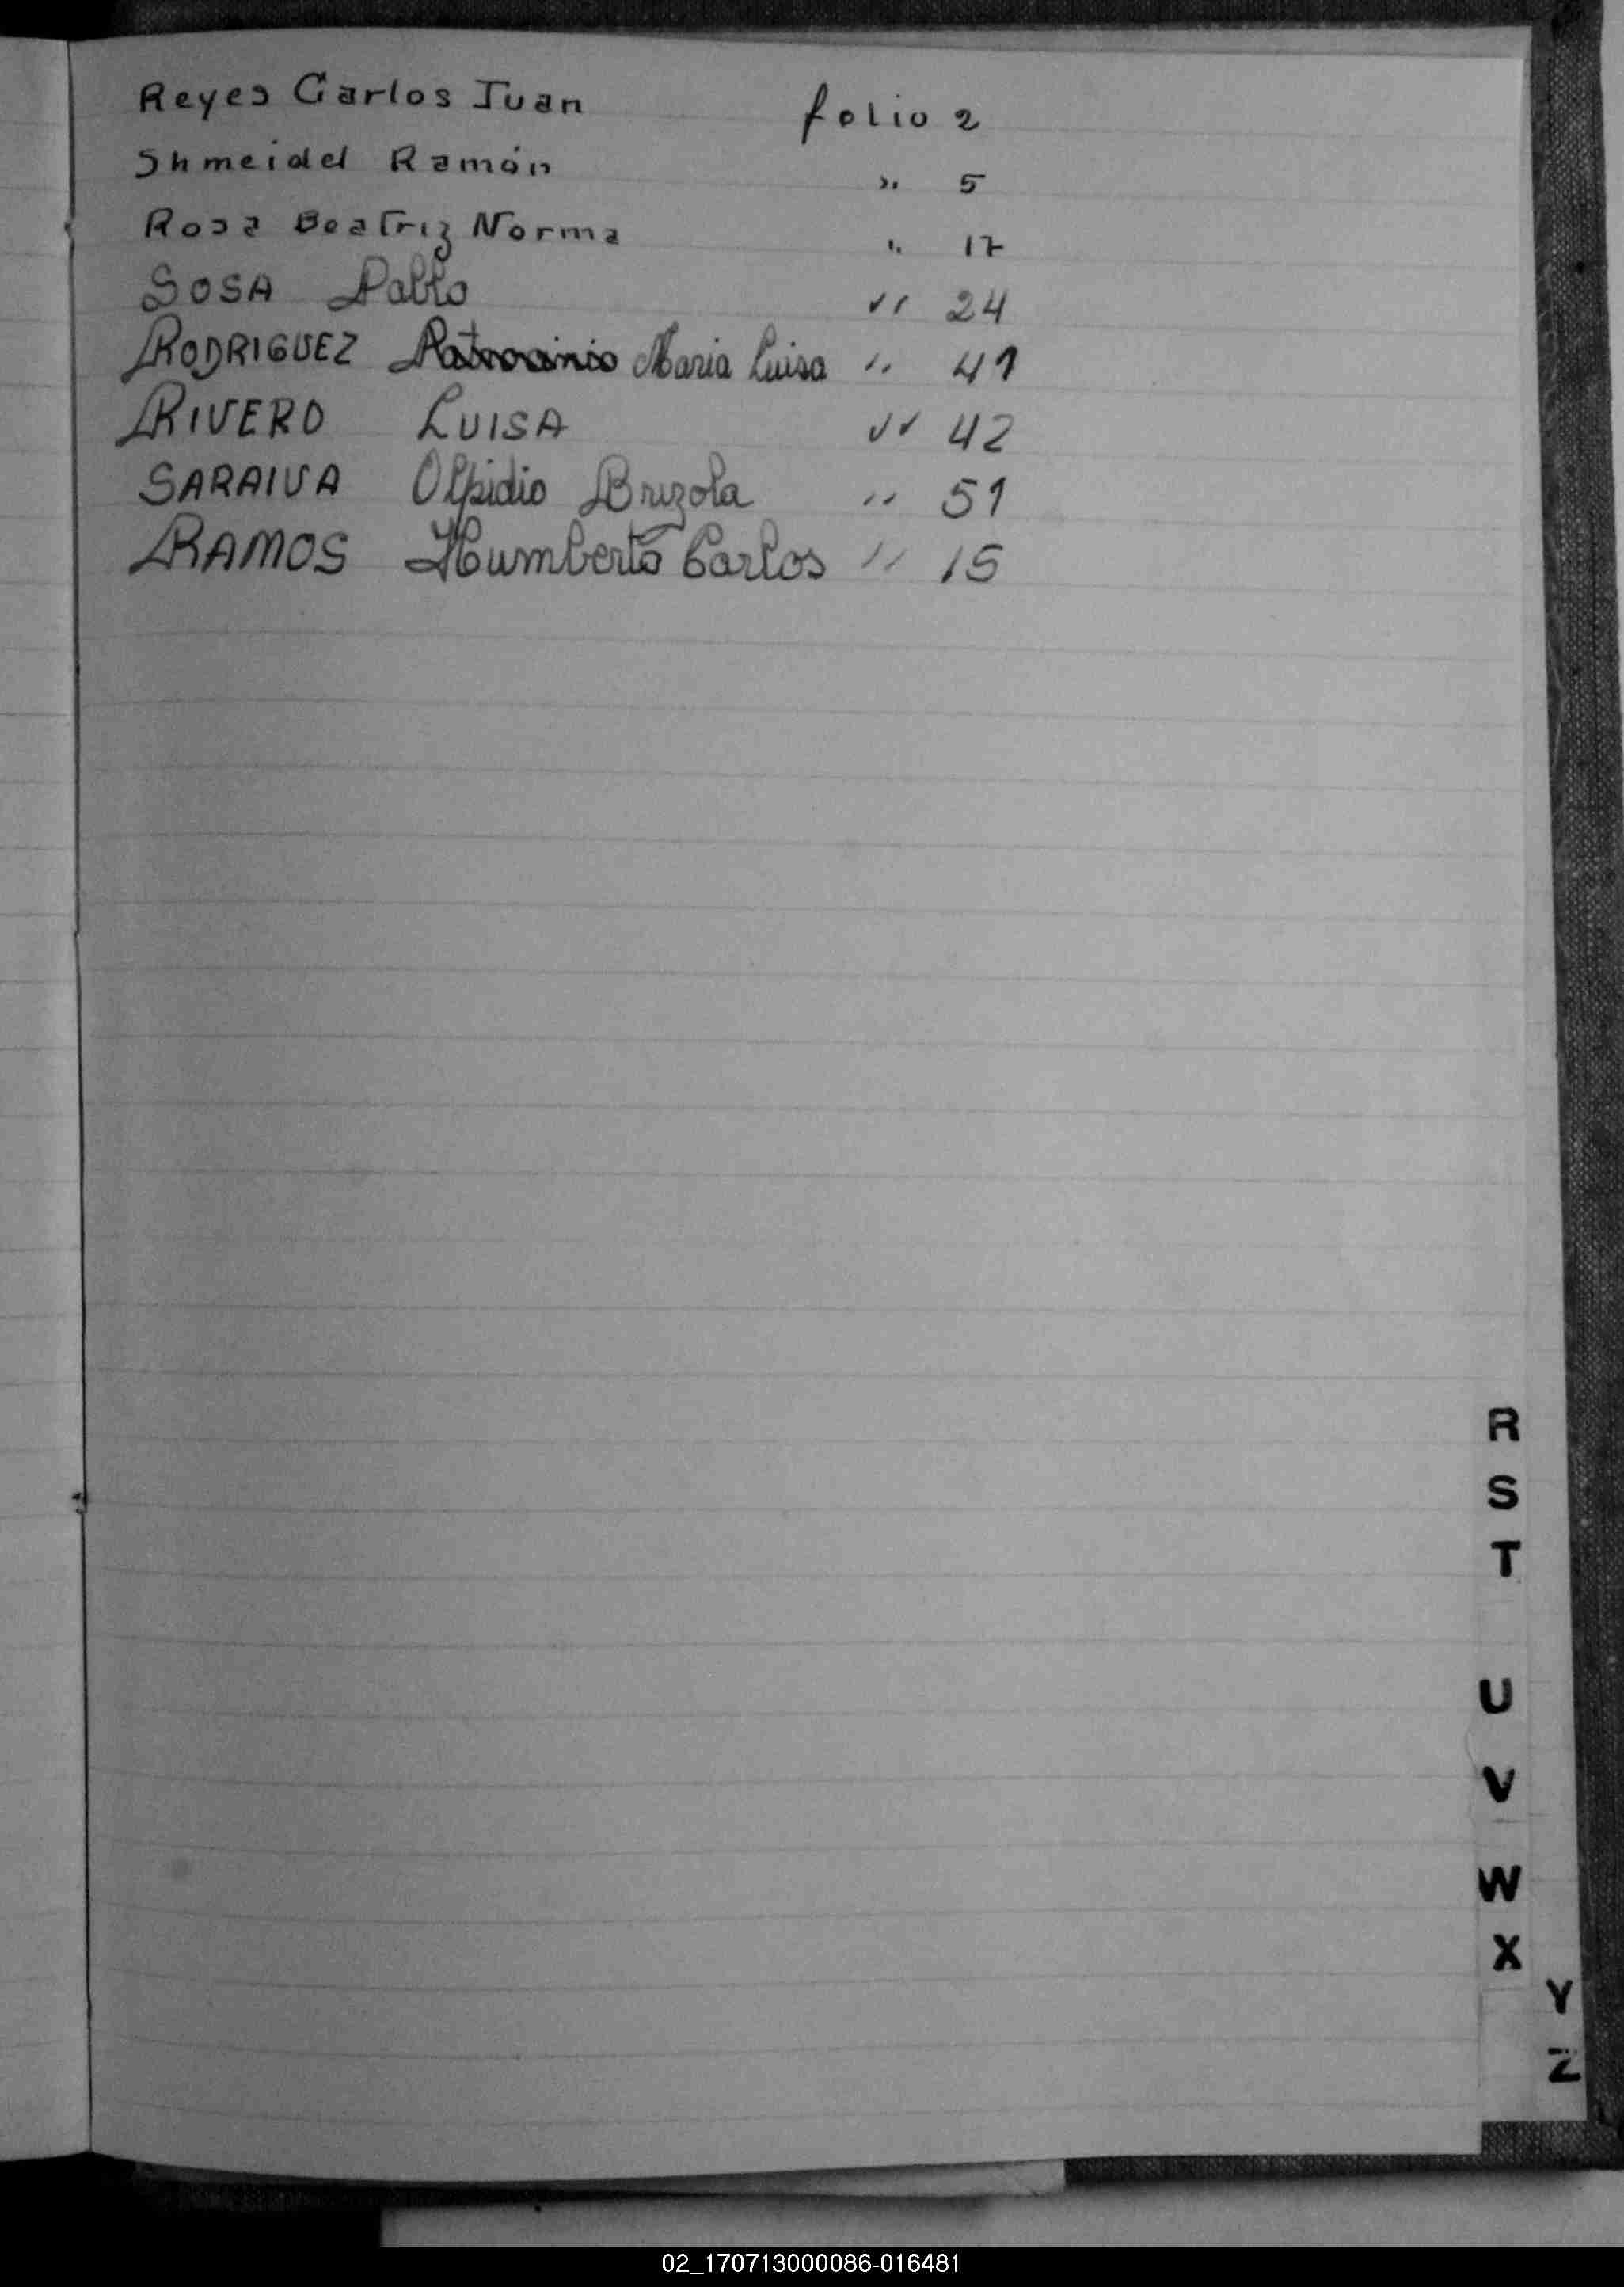 Reyes Carlos Juan folio 2
Shmeidel Ramón " 5
Rosa Beatriz Norma " 17
SOSA Pablo " 24
RODRIGUEZ Patrocinio Maria Luisa " 41
RIVERO LUISA " 42
SARAIVA Olpidio Brizola " 51
RAMOS Humberto Carlos " 15
R
S
T
U
V
W
X
Y
Z
02_170713000086-016481